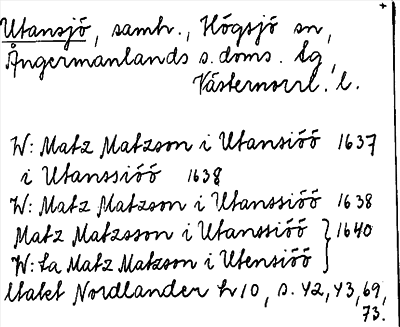 Utansjö, samh., Högsjö sn,
Ångermanlands s. doms. lg,
Västernorrl. l.
W: Matz Matzson i Utansiöö 1637
i Utanssiöö 1638
W: Matz Matzson i Utanssiöö 1638
Matz Matzsson i Utanssiöö } 1640
W: La Matz Matzson i Utensiöö
Utalet Nordlander h 10, s. 42, 43, 69,
73.